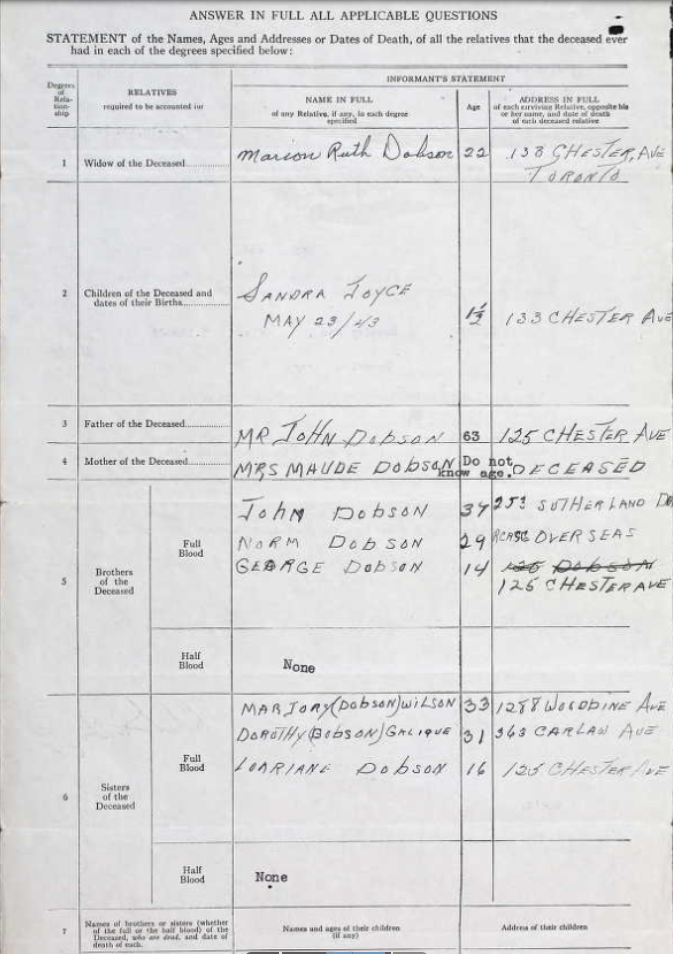 ANSWER IN FULL ALL APPLICABLE QUESTIONS
STATEMENT of the Names, Ages and Addresses or Dates of Death, of all the relatives that the deceased ever
had in each of the degrees specified below:
Degrees
of
Rela-
tion-
ship
RELATIVES
required to be accounted for
INFORMANT'S STATEMENT
NAME IN FULL
of any Relative, if any, in each degree
specified
Age
ADDRESS IN FULL
of each surviving Relative, opposite his
or her name, and date of death
of each deceased relative
1 Widow of the Deceased Marion Ruth Dobson 22 133 CHESTER, AVE
TORONTO
2 Children of the Deceased and
dates of their Births
SANDRA JOYCE
MAY 23/43 1½ 133 CHESTER AVE
3 Father of the Deceased MR JOHN DobsoN 63 125 CHESTER AVE
4 Mother of the Deceased MRS MAUDE DobsoN Do not
know age. DECEASED
5 Brothers
of the
Deceased
Full
Blood
JohN DobsoN 34 SUTHERLAND
NORM DobsoN 29 OVERSEAS
GEORGE DobsoN 14 125 DobsoN
125 CHESTER AVE
Half
Blood
None
6 Sisters
of the
Deceased
Full
Blood
MARJORY (DobsoN) WILSON 33 1288 WOODBINE AVE
DOROTHY (DobsoN) 31 363 CARLAW AVE
LORIANE DobsoN 16 125 CHESTER AVE
Half
Blood
None
7 Names of brothers or sisters (whether
of the full or the half blood) of the
Deceased, who are dead, and date of
death of each.
Names and ages of their children
(if any)
Address of their children